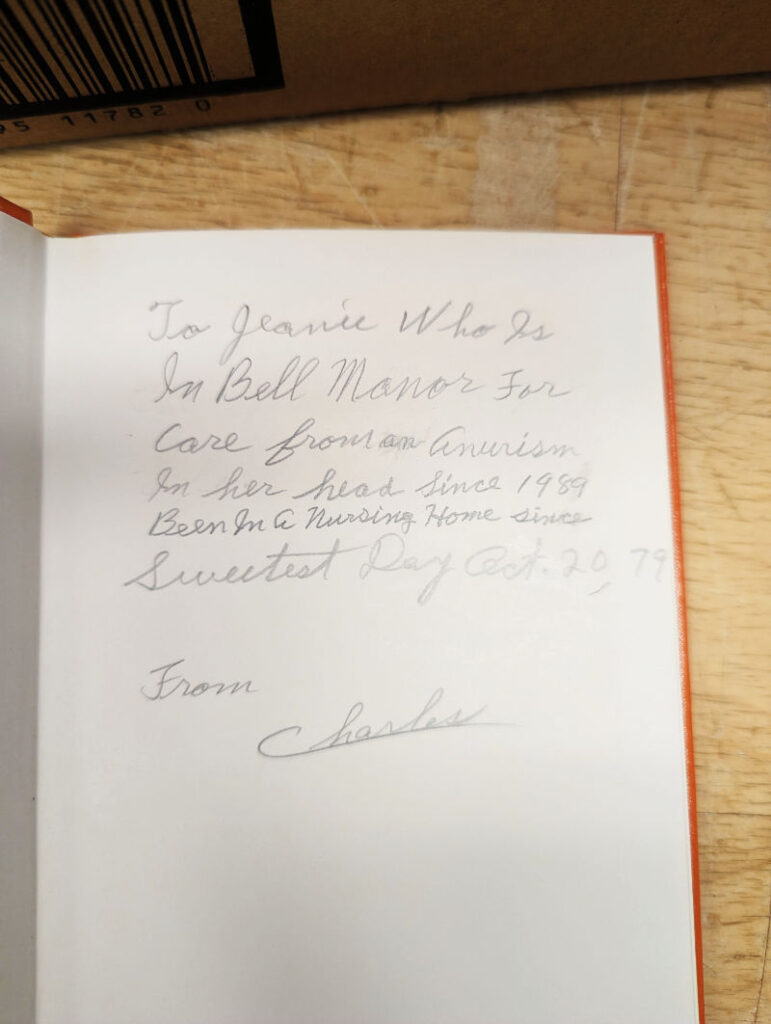 95 11782 0
To Jeanie Who Is
In Bell Manor For
Care from an Anurism
In her head Since 1989
Been In A Nursing Home since
Sweetest Day Oct. 20, 79
From
Charles